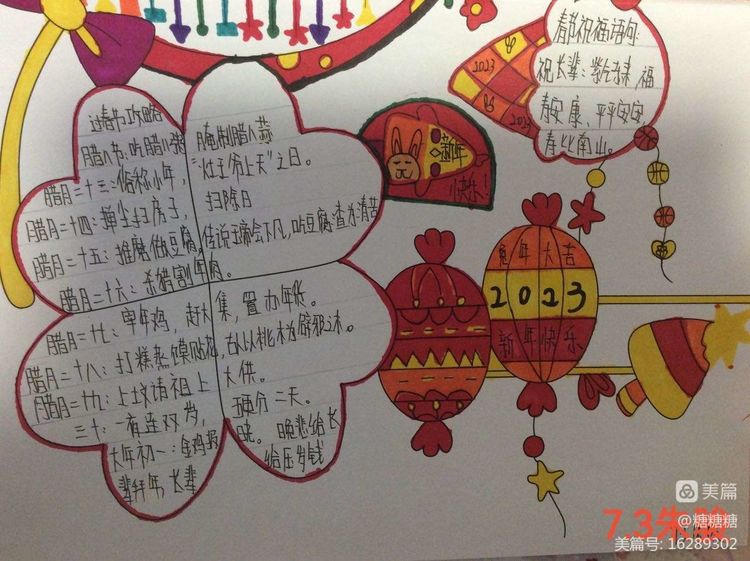 过春节攻略
腊八节、吃腊八粥 腌制腊八蒜
腊月二十三：俗称小年，“灶王爷上天”之日。
腊月二十四：掸尘扫房子， 扫除日
腊月二十五：推磨做豆腐。传说玉帝会下凡，吃豆腐渣为清苦
腊月二十六：杀猪割年肉。
腊月二十七：宰年鸡，赶大集，置办年货。
腊月二十八：打糕蒸馍贴花 古以桃木为辟邪之木。
腊月二十九：上坟请祖上大供。
三十：一夜连双岁，五更分二天。
大年初一：金鸡报晓。晚悲给长
辈拜年，长辈给压岁钱
新年
快乐！
2023
2023
春节祝福语句：
祝长辈：
福
寿安康、平平安安
寿比南山。
兔年大吉
2023
新年快乐
7.3朱
美篇
@糖糖糖
美篇号：16289302